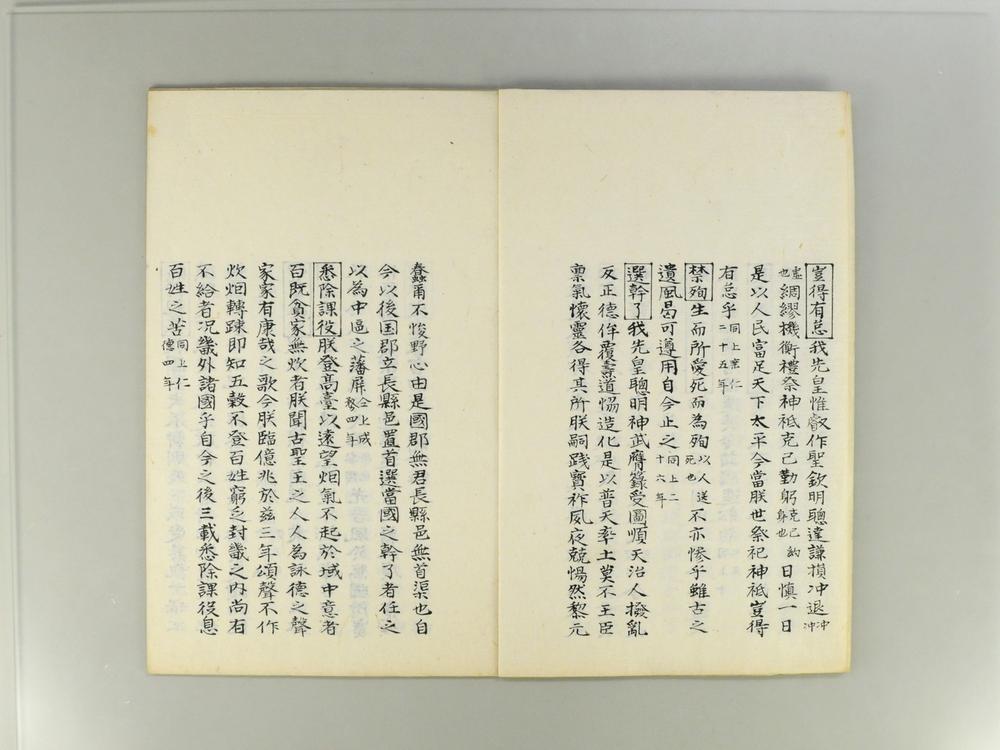 豈得有怠我先皇惟叡作聖欽明聰達謙損冲退冲冲
虛也綢繆機衡禮祭神祗克己勤躬克己約身也日慎一日
是以人民富足天下太平今當朕世祭祀神祗豈得
有怠乎同上垂仁二十五年
禁殉生而所愛死而為殉以人送死也不亦慘乎雖古之
遺風曷可遵用自今止之同上二十六年
選幹了我先皇聰明神武膺籙受圖順天治人撥亂
反正德侔覆燾道恊造化是以普天率土莫不王臣
禀氣懷靈各得其所朕嗣踐寳祚夙夜兢惕然黎元
蠢爾不悛野心由是國郡無君長縣邑無首渠也自
今以後国郡立長縣邑置首選當國之幹了者任之
以為中區之藩屏仝上成務四年
悉除課役朕登高臺以遠望烟氣不起於域中意者
百既貪家無炊者朕聞古聖王之人人為詠德之聲
家家有康哉之歌今朕臨億兆於兹三年頌聲不作
炊烟轉踈即知五穀不登百姓窮乏封畿之內尚有
不給者况畿外諸國乎自今之後三載悉除課役息
百姓之苦同上仁德四年